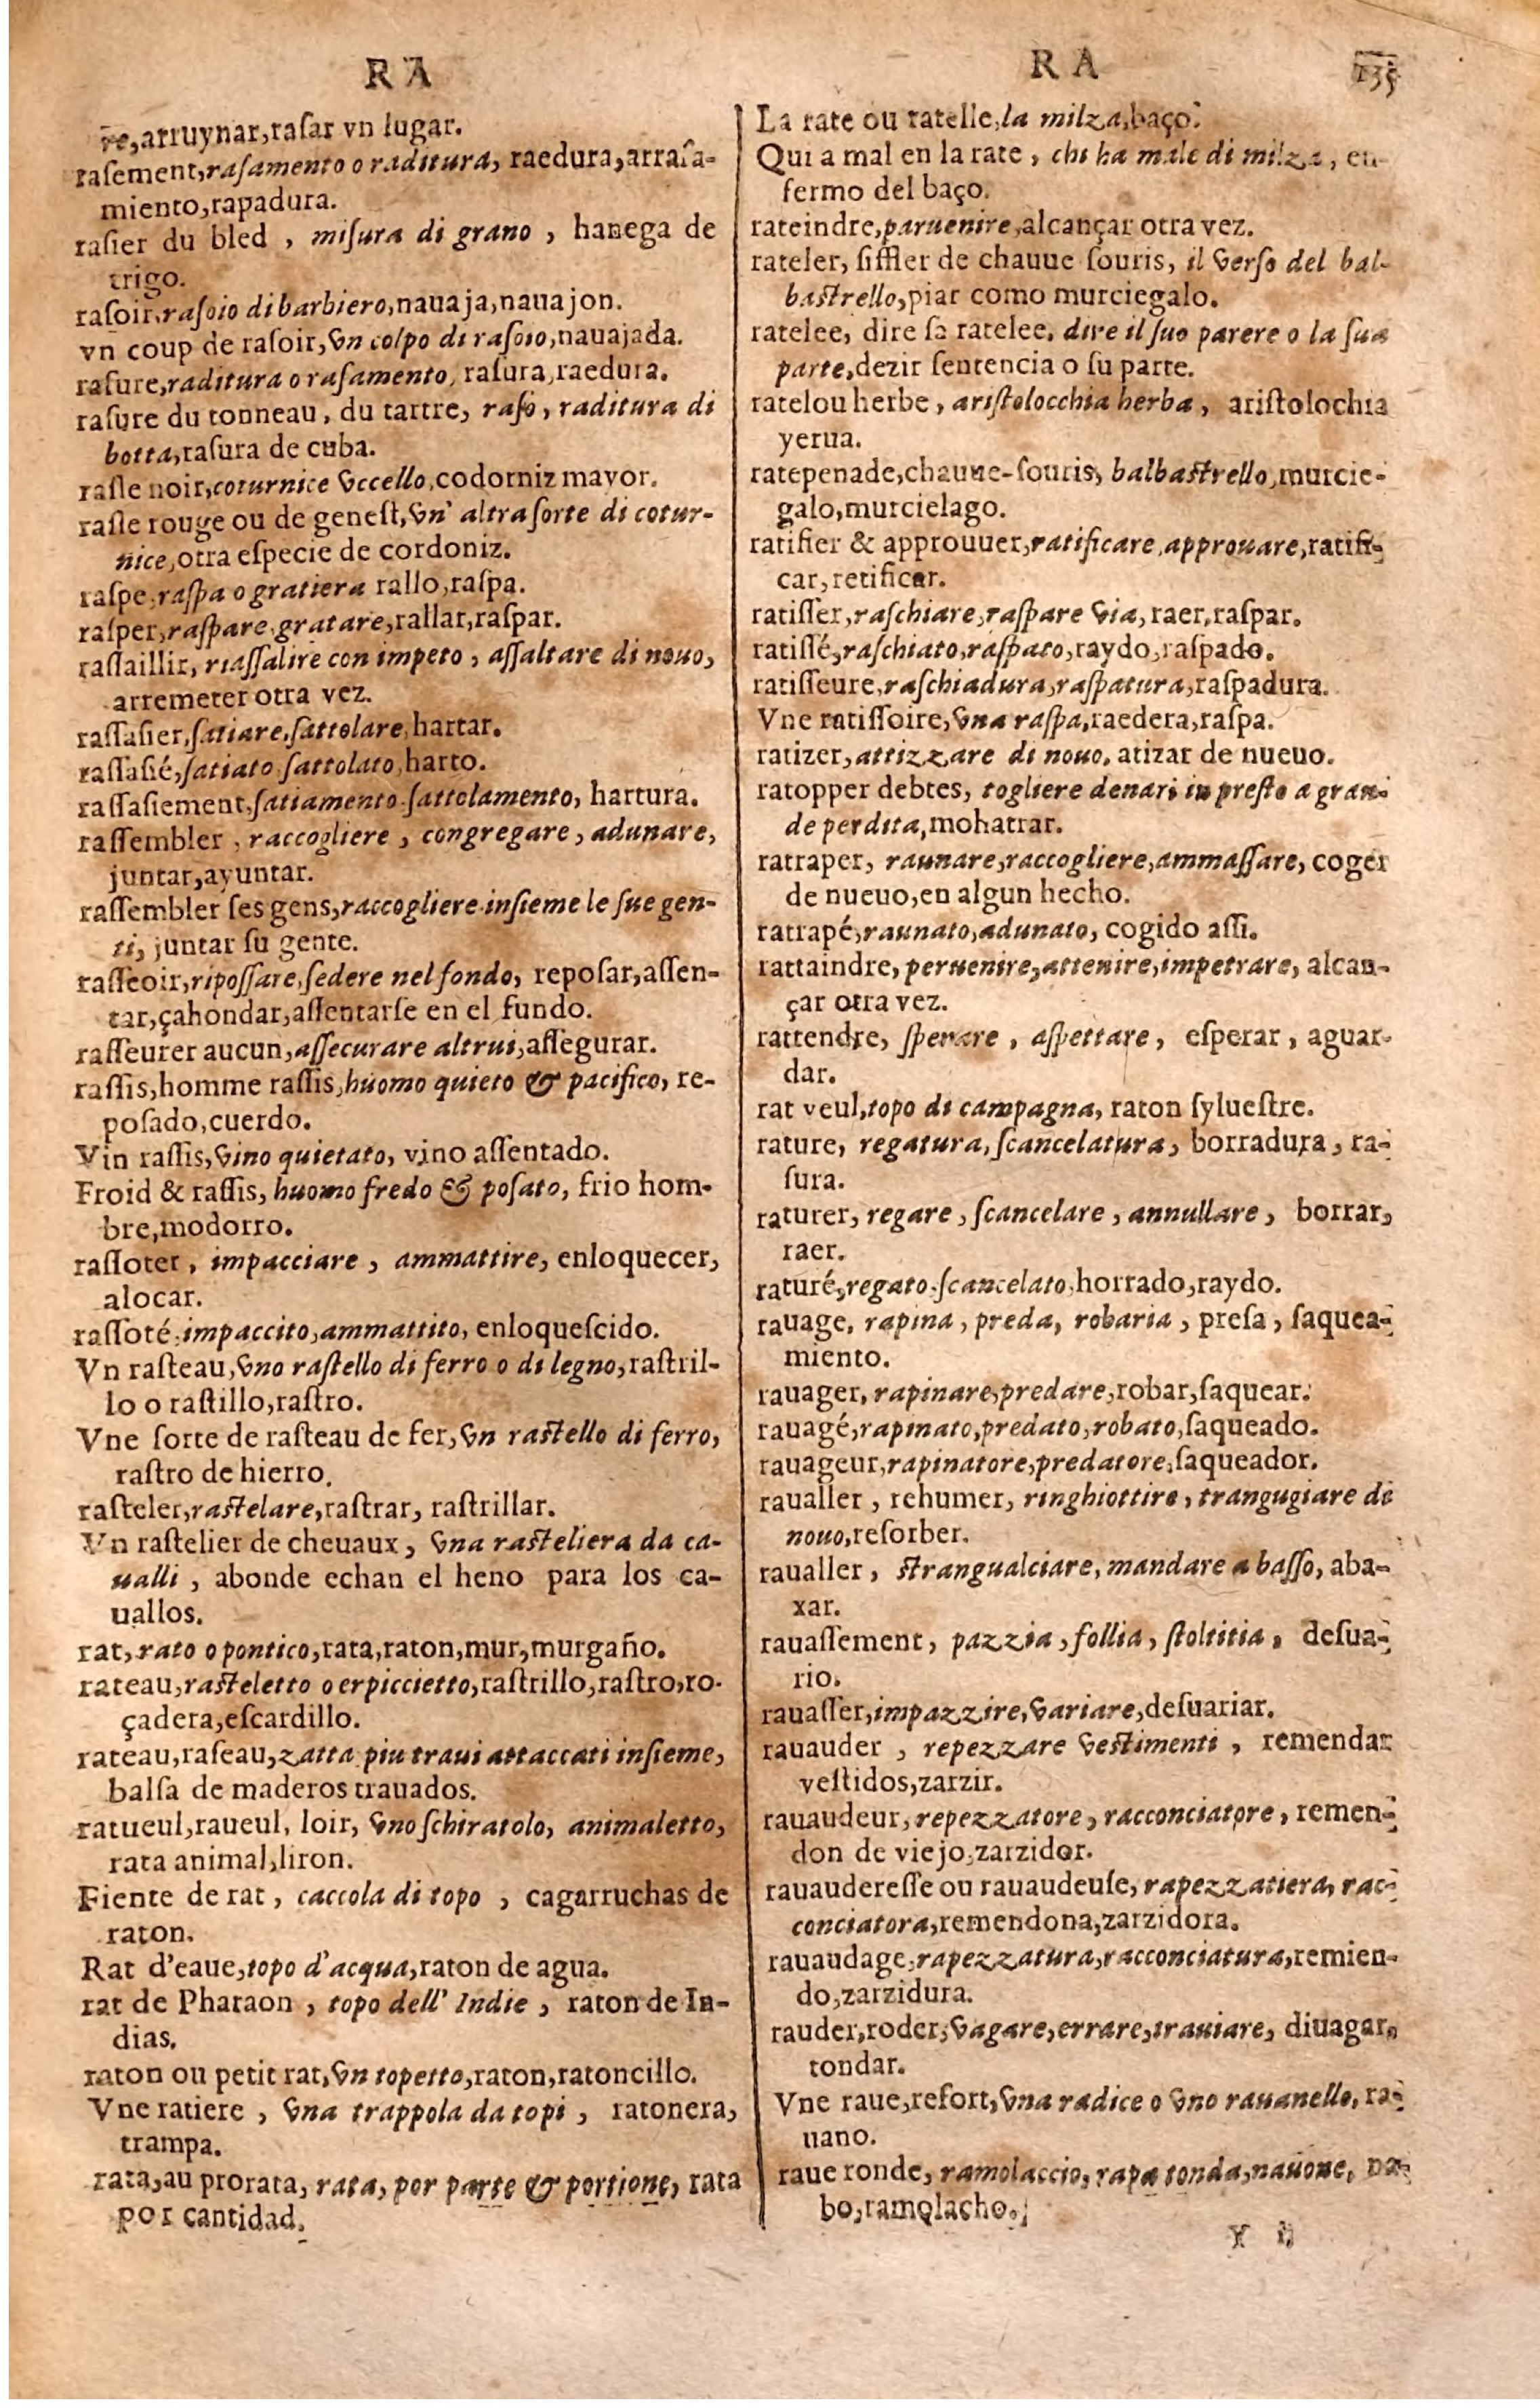 RA
re,arruynar,raſar vn lugar.
raſement,raſamento o raditura, raedura,arraſa-
miento,rapadura.
raſier du bled , miſura di grano , hanega de
trigo.
raſoir,raſoio di barbiero,nauaja,nauajon.
vn coup de raſoir,vn colpo di raſoio,nauajada.
raſure,raditura o raſamento, raſura,raedura.
raſure du tonneau, du tartre, raſo, raditura di
botta,raſura de cuba.
raſle noir,coturnice vccello,codorniz mayor.
raſle rouge ou de geneſt,vn' altra ſorte di cotur-
nice,otra eſpecie de cordoniz.
raſpe,raſpa o gratiera rallo,raſpa.
raſper,raſpare,gratare,rallar,raſpar.
raſſaillir, riaſſalire con impeto , aſſaltare di nouo,
arremeter otra vez.
raſſaſier,ſatiare,ſattolare,hartar.
raſſaſié,ſatiato,ſattolato,harto.
raſſaſiement,ſatiamento,ſattolamento, hartura.
raſſembler , raccogliere , congregare , adunare,
juntar,ayuntar.
raſſembler ſes gens,raccogliere inſieme le ſue gen-
ti, juntar ſu gente.
raſſeoir,ripoſſare,ſedere nel fondo, repoſar,aſſen-
tar,çahondar,aſſentarſe en el fundo.
raſſeurer aucun,aſſecurare altrui,aſſegurar.
raſſis,homme raſſis,huomo quieto & pacifico, re-
poſado,cuerdo.
Vin raſſis,vino quietato, vino aſſentado.
Froid & raſſis, huomo fredo & poſato, frio hom-
bre,modorro.
raſſoter , impacciare , ammattire, enloquecer,
alocar.
raſſoté,impaccito,ammattito, enloqueſcido.
Vn raſteau,vno raſtello di ferro o di legno,raſtril-
lo o raſtillo,raſtro.
Vne ſorte de raſteau de fer,vn raſtello di ferro,
raſtro de hierro.
raſteler,raſtelare,raſtrar, raſtrillar.
Vn raſtelier de cheuaux, vna raſteliera da ca-
ualli , abonde echan el heno para los ca-
uallos.
rat,rato o pontico,rata,raton,mur,murgaño.
rateau,raſteletto o erpiccietto,raſtrillo,raſtro,ro-
çadera,eſcardillo.
rateau,raſeau,zatta piu traui attaccati inſieme,
balſa de maderos trauados.
ratueul,raueul, loir, vno ſchiratolo, animaletto,
rata animal,liron.
Fiente de rat , caccola di topo , cagarruchas de
raton.
Rat d'eaue,topo d'acqua,raton de agua.
rat de Pharaon , topo dell' Indie , raton de In-
dias.
raton ou petit rat,vn topetto,raton,ratoncillo.
Vne ratiere , vna trappola da topi , ratonera,
trampa.
rata,au prorata, rata, por parte & portione, rata
por cantidad.
RA 135
La rate ou ratelle,la milza,baço.
Qui a mal en la rate , chi ha male di milza , en-
fermo del baço.
rateindre,paruenire,alcançar otra vez.
rateler, ſiffler de chauue ſouris, il verſo del bal-
baſtrello,piar como murciegalo.
ratelee, dire ſa ratelee, dire il ſuo parere o la ſua
parte,dezir ſentencia o ſu parte.
ratelou herbe , ariſtolocchia herba , ariſtolochia
yerua.
ratepenade,chauue-ſouris, balbaſtrello,murcie-
galo,murcielago.
ratifier & approuuer,ratificare,approuare,ratifi-
car,retificar.
ratiſſer,raſchiare,raſpare via, raer,raſpar.
ratiſſé,raſchiato,raſpato,raydo,raſpado.
ratiſſeure,raſchiadura,raſpatura,raſpadura.
Vne ratiſſoire,vna raſpa,raedera,raſpa.
ratizer,attizzare di nouo, atizar de nueuo.
ratopper debtes, togliere denari in preſto a gran-
de perdita,mohatrar.
ratraper, raunare,raccogliere,ammaſſare, coger
de nueuo,en algun hecho.
ratrapé,raunato,adunato, cogido aſſi.
rattaindre, peruenire,attenire,impetrare, alcan-
çar otra vez.
rattendre, ſperare , aſpettare , eſperar , aguar-
dar.
rat veul,topo di campagna, raton ſylueſtre.
rature, regatura,ſcancelatura, borradura, ra-
ſura.
raturer, regare , ſcancelare , annullare , borrar,
raer.
raturé,regato,ſcancelato,horrado,raydo.
rauage, rapina, preda, robaria , preſa , ſaquea-
miento.
rauager, rapinare,predare,robar,ſaquear.
rauagé,rapinato,predato,robato,ſaqueado.
rauageur,rapinatore,predatore,ſaqueador.
raualler , rehumer, ringhiottire, trangugiare de
nouo,reſorber.
raualler , ſtrangualciare, mandare a baſſo, aba-
xar.
rauaſſement, pazzia , follia , ſtoltitia, deſua-
rio.
rauaſſer,impazzire,variare,deſuariar.
rauauder , repezzare veſtimenti , remendar
veſtidos,zarzir.
rauaudeur, repezzatore , racconciatore , remen-
don de viejo,zarzidor.
rauaudereſſe ou rauaudeuſe, rapezzatiera, rac-
conciatora,remendona,zarzidora.
rauaudage,rapezzatura,racconciatura,remien-
do,zarzidura.
rauder,roder,vagare,errare,trauiare, diuagar,
tondar.
Vne raue,refort,vna radice o vno rauanello, ra-
uano.
raue ronde, ramolaccio, rapa tonda,nauone, na-
bo,ramolacho.
Y ij